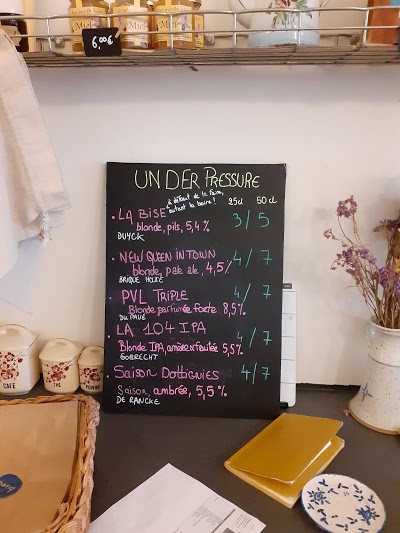 Miel
6,00€
UNDER PRESSURE
à défaut de la faire,
autant la boire !
25cl 50cl
• LA BISE 3/5
blonde, pils, 5,4 %
DUYCK
• NEW QUEEN IN TOWN 4/7
blonde, pale ale, 4,5%
BRIQUE HOUSE
• PVL TRIPLE 4/7
Blonde parfumée forte 8,5%
DU PAVÉ
• LA 104 IPA 4/7
Blonde IPA, amère & fruitée 5,5%
GOBRECHT
• SAISON Dottignies 4/7
Saison, ambrée, 5,5 %
DE RANCKE
CAFÉ
THÉ
POIVRE